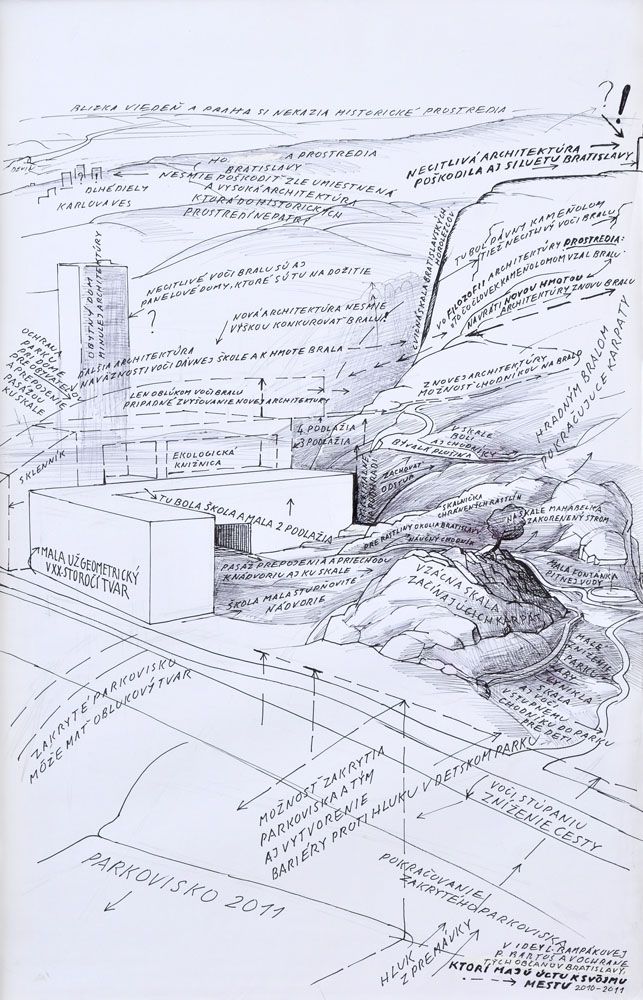 BLÍZKA VIEDEŇ A PRAHA SI NEKAZIA HISTORICKÉ PROSTREDIA
?
!
NECITLIVÁ ARCHITEKTÚRA
POŠKODILA AJ SILUETU BRATISLAVY
DEVÍN
HO. A PROSTREDIA
BRATISLAVY
NESMIE POŠKODIŤ ZLE UMIESTNENÁ
A VYSOKÁ ARCHITEKTÚRA
KTORÁ DO HISTORICKÝCH
PROSTREDÍ NEPATRÍ
? ?
DLHÉ DIELY
KARLOVA VES
CVIČNÁ SKALA BRATISLAVSKÝCH
HOROLEZCOV
TU BOL DÁVNY KAMEŇOLOM
TIEŽ NECITLIVÝ VOČI BRALU
VO FILOZOFII ARCHITEKTÚRY PROSTREDIA:
ČO ČLOVEK KAMEŇOLOMOM VZAL BRALU
NAVRÁTI NOVOU HMOTOU
ARCHITEKTÚRY ZNOVU BRALU
OBYTNÝ DOM
MINULEJ ARCHITEKTÚRY
NECITLIVÉ VOČI BRALU SÚ AJ
PANELOVÉ DOMY, KTORÉ SÚ TU NA DOŽITIE
?
NOVÁ ARCHITEKTÚRA NESMIE
VÝŠKOU KONKUROVAŤ BRALU!
OCHRANA
PARKU
PRI DOME
PRE OBYVATEĽOV
A PREPOJENIE
PASÁŽOU
KU SKALE
ĎALŠIA ARCHITEKTÚRA
NAVÄZNOSTI VOČI DÁVNEJ ŠKOLE A K HMOTE BRALA
LEN OBLÚKOM VOČI BRALU
PRÍPADNÉ ZVYŠOVANIE NOVEJ ARCHITEKTÚRY
Z NOVEJ ARCHITEKTÚRY
MOŽNOSŤ CHODNÍKOV NA BRALO
HRADNÝM BRALOM
POKRAČUJÚCE KARPATY
4 PODLAŽIA
3 PODLAŽIA
V SKALE
BOLI
AJ CHODBIČKY
BÝVALÁ PLOŠINA
SKLENNÍK
EKOLOGICKÁ
KNIŽNICA
ZACHOVAŤ
ODSTUP
SKALNIČKA
CHRÁNENÝCH RASTLÍN
NA SKALE MAHABELKA
ZAKORENENÝ STROM
TU BOLA ŠKOLA A MALA 2 PODLAŽIA
PRE RASTLINY OKOLIA BRATISLAVY
NÁUČNÝ CHODNÍK
MALÁ FONTÁNKA
PITNEJ VODY
MALA UŽ GEOMETRICKÝ
V XX. STOROČÍ TVAR
PASÁŽ PREPOJENIA A PRIECHODU
K NÁDVORIU AJ KU SKALE
ŠKOLA MALA STUPŇOVITÉ
NÁDVORIE
VZÁCNA SKALA
ZAČÍNAJÚCICH KARPÁT
MALÉ
ZNÍŽENIE
PARKU
ABY
VYNIKLA
SKALA
AJ VOČI
VSTUPNÉMU
CHODNÍKU DO PARKU
PRE DETI
ZAKRYTÉ PARKOVISKO
MÔŽE MAŤ OBLÚKOVÝ TVAR
MOŽNOSŤ ZAKRYTIA
PARKOVISKA A TÝM
AJ VYTVORENIE
BARIÉRY PROTI HLUKU V DETSKOM PARKU
VOČI STÚPANIU
ZNÍŽENIE CESTY
PARKOVISKO 2011
POKRAČOVANIE
ZAKRYTÉHO PARKOVISKA
HLUK
Z PREMÁVKY
V IDEY L. RAMPÁKOVEJ
P. BARTOŠ A V OCHRANE
TÝCH OBČANOV BRATISLAVY,
KTORÍ MAJÚ ÚCTU K SVOJMU
MESTU 2010-2011